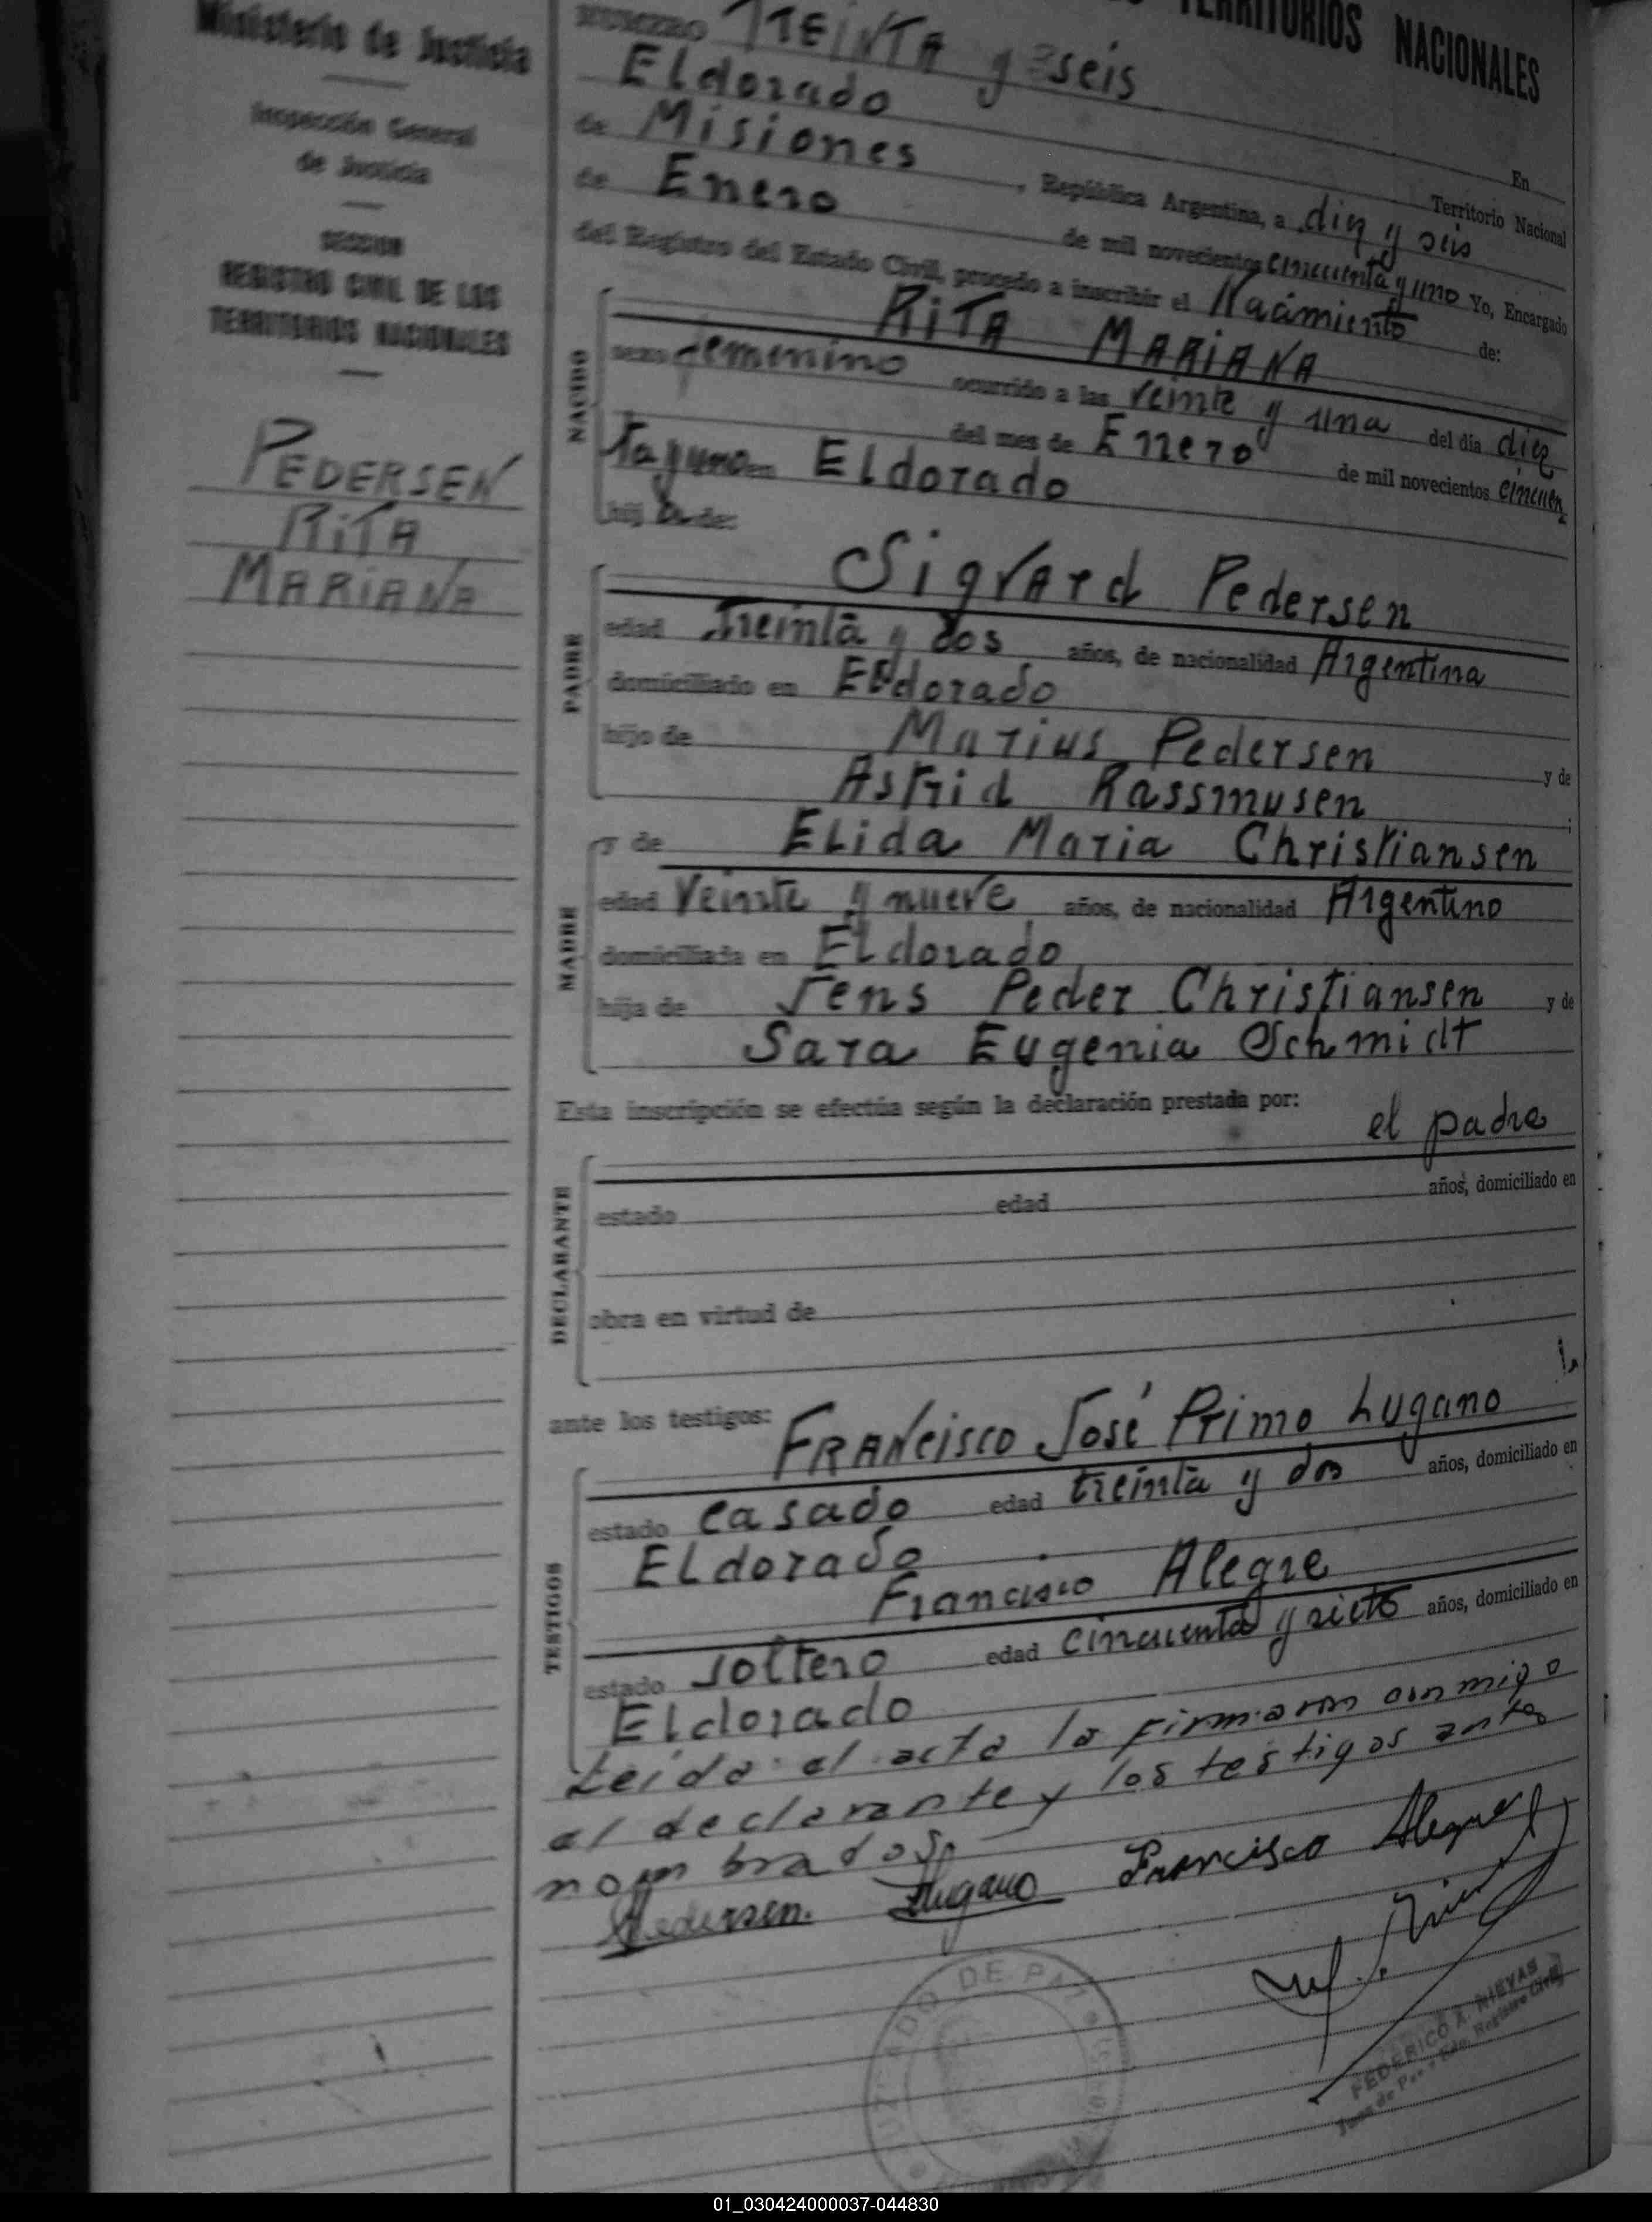 Ministerio de Justicia
Inspección General
de Justicia
SECCION
REGISTRO CIVIL DE LOS
TERRITORIOS NACIONALES
PEDERSEN
RITA
MARIANA
TERRITORIOS NACIONALES
NUMERO TREINTA y seis En
Eldorado Territorio Nacional
de Misiones, República Argentina, a diez y seis
de Enero de mil novecientos cincuenta y uno Yo, Encargado
del Registro del Estado Civil, procedo a inscribir el Nacimiento de:
NACIDO
RITA MARIANA
sexo femenino ocurrido a las veinte y una del día diez
del mes de Enero de mil novecientos cincuen
ta y uno en Eldorado
hij a de:
PADRE
Sigvard Pedersen
edad Treinta y dos años, de nacionalidad Argentina
domiciliado en Eldorado
hijo de Marius Pedersen y de
Astrid Rassmusen ;
MADRE
y de Elida Maria Christiansen
edad Veinte y nueve años, de nacionalidad Argentino
domiciliada en Eldorado
hija de Jens Peder Christiansen y de
Sara Eugenia Schmidt
Esta inscripción se efectúa según la declaración prestada por:
el padre
DECLARANTE
estado edad años, domiciliado en
obra en virtud de
ante los testigos:
TESTIGOS
FRANCISCO José Primo Lugano
estado casado edad treinta y dos años, domiciliado en
Eldorado
Francisco Alegre
estado soltero edad cincuenta y siete años, domiciliado en
Eldorado
Leída el acta la firmaron conmigo
el declarante y los testigos antes
nombrados.
Pedersen. Lugano Francisco Alegre
JUZGADO DE PAZ
FEDERICO A. NIEVAS
Juez de Paz y Edo. Registro Civil
01_030424000037-044830